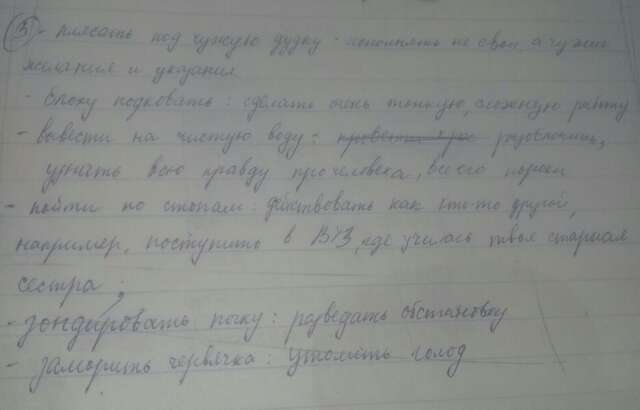 ③ - плясать под чужую дудку - исполнять не свои, а чужие
желания и указания
- блоху подковать: сделать очень тонкую, сложную работу
- вывести на чистую воду: разоблачить,
узнать всю правду про человека, все его пороки
- пойти по стопам: действовать как кто-то другой,
например, поступить в ВУЗ, где училась твоя старшая
сестра.
- зондировать почку: разведать обстановку
- заморить червячка: утолить голод